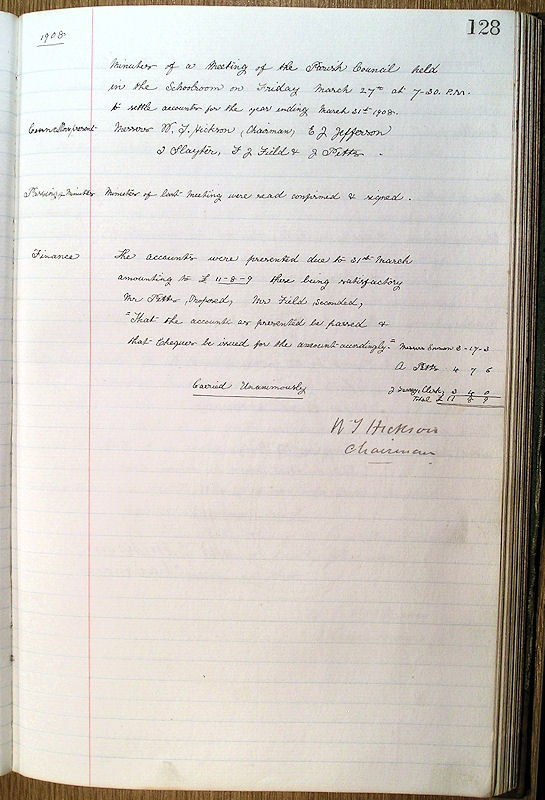 128
1908
Minutes of a Meeting of the Parish Council held
in the Schoolroom on Friday March 27th at 7-30. P.m.
to settle accounts for the year ending March 31st 1908.
present Messrs W. T. Hickson, Chairman, E J Jefferson
T Slayter, F J Field & J Pitts.
Passing of Minutes Minutes of last Meeting were read confirmed & signed.
Finance The accounts were presented due to 31st March
amounting to £ 11-8-9 these being satisfactory
Mr Pitts, Proposed, Mr Field, Seconded,
"That the accounts as presented be passed &
that Cheques be issued for the amount accordingly." Messrs 3-17-3
A Pitts 4 7 6
Carried Unanimously
J Clerk, 3 4 0
Total £ 11 8 9
W T Hickson
Chairman